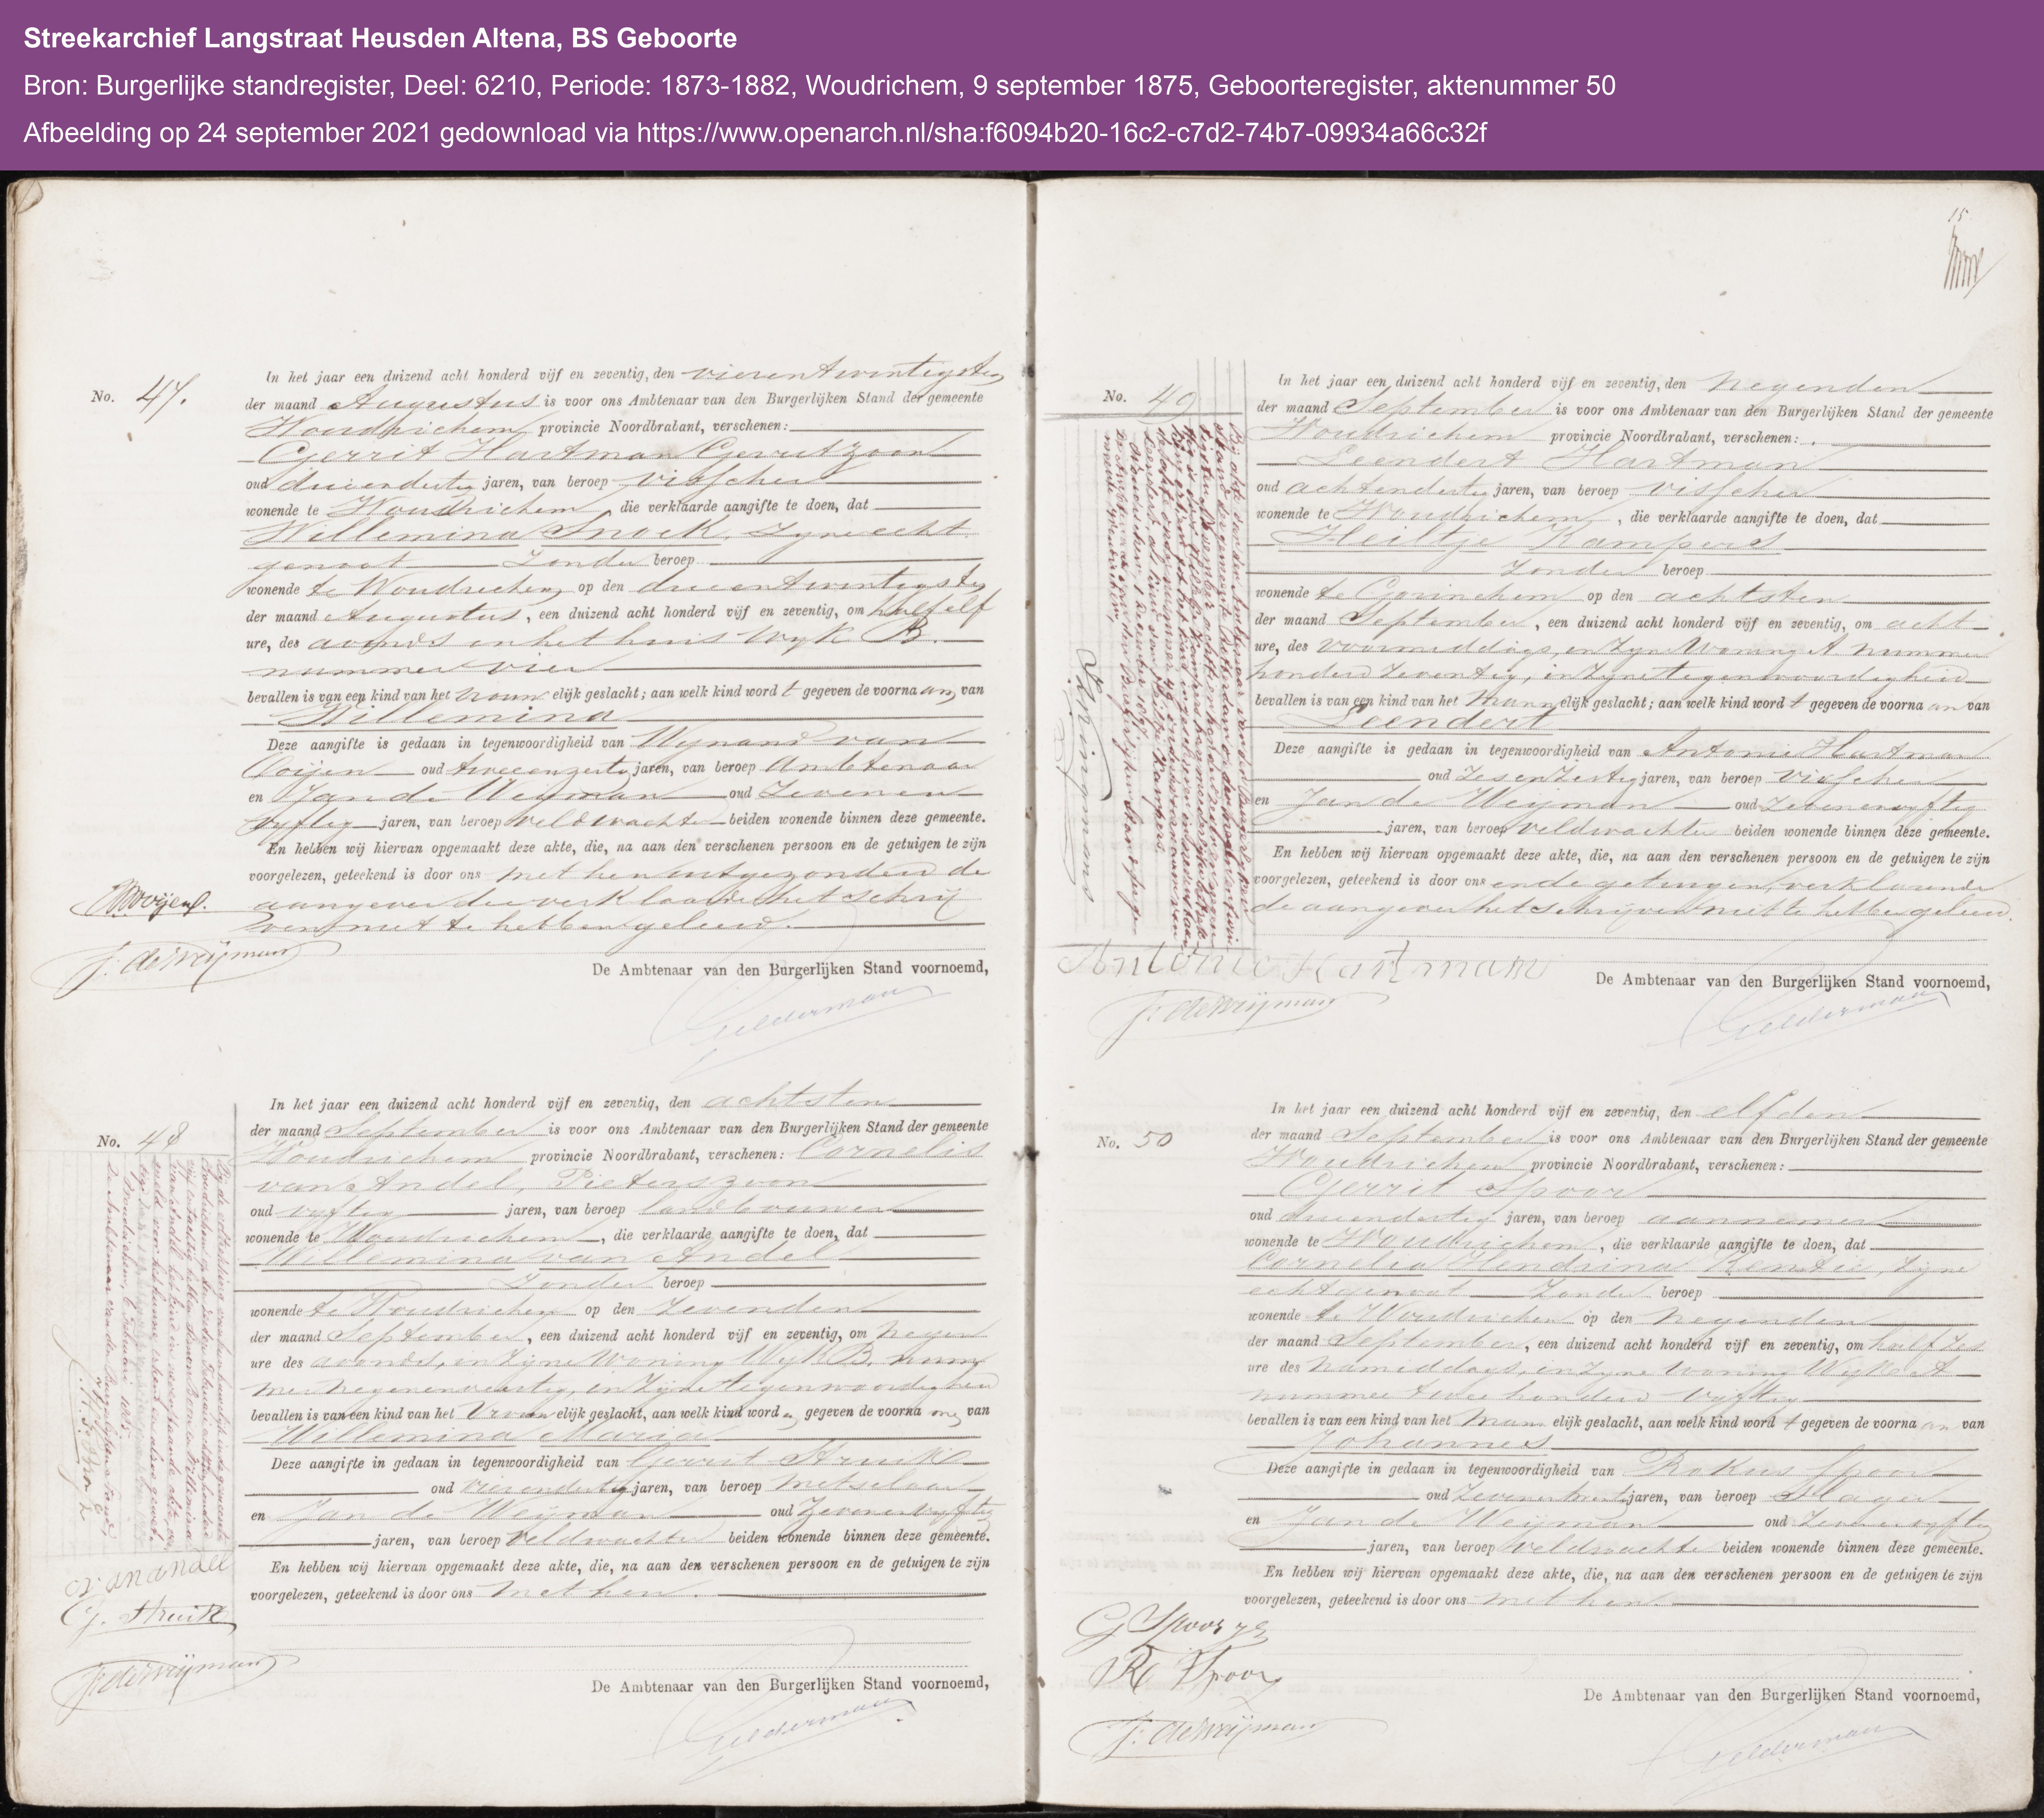 Streekarchief Langstraat Heusden Altena, BS Geboorte
Bron: Burgerlijke standregister, Deel: 6210, Periode: 1873-1882, Woudrichem, 9 september 1875, Geboorteregister, aktenummer 50
Afbeelding op 24 september 2021 gedownload via https://www.openarch.nl/sha:f6094b20-16c2-c7d2-74b7-09934a66c32f
No. 47.
In het jaar een duizend acht honderd vijf en zeventig, den vierentwintigsten
der maand Augustus is voor ons Ambtenaar van den Burgerlijken Stand der gemeente
Woudrichem provincie Noordbrabant, verschenen:
Gerrit Hartman Gerritzoon
oud drieendertig jaren, van beroep visscher
wonende te Woudrichem, die verklaarde aangifte te doen, dat
Willemina Snoek, zyne echt
genoot zonder beroep
wonende te Woudrichem op den drieentwintigsten
der maand Augustus, een duizend acht honderd vijf en zeventig, om half elf
ure, des avonds in het huis Wyk B.
nummer vier
bevallen is van een kind van het vrouwelijk geslacht; aan welk kind wordt gegeven de voornaam van
Willemina
Deze aangifte is gedaan in tegenwoordigheid van Wynand van
Ooijen oud tweeenzestig jaren, van beroep Ambtenaar
en Jan de Weijman oud zevenen
vyftig jaren, van beroep veldwachter beiden wonende binnen deze gemeente.
En hebben wij hiervan opgemaakt deze akte, die, na aan den verschenen persoon en de getuigen te zijn
voorgelezen, geteekend is door ons met hen uitgezonderd de
aangever die verklaarde het schrij
ven niet te hebben geleerd.
J: de Weijman
De Ambtenaar van den Burgerlijken Stand voornoemd,
Gelderman
No. 48
In het jaar een duizend acht honderd vijf en zeventig, den achtsten
der maand September is voor ons Ambtenaar van den Burgerlijken Stand der gemeente
Woudrichem provincie Noordbrabant, verschenen: Cornelis
van Andel, Pieterszoon
oud vyftig jaren, van beroep landbouwer
wonende te Woudrichem, die verklaarde aangifte te doen, dat
Willemina van Andel
zonder beroep
wonende te Woudrichem op den zevenden
der maand September, een duizend acht honderd vijf en zeventig, om negen
ure des avonds, in zyne Woning Wyk B. num
mer negenenveertig, in zyne tegenwoordigheid
bevallen is van een kind van het Vrouwelijk geslacht, aan welk kind worden gegeven de voornamen van
Willemina Maria
Deze aangifte in gedaan in tegenwoordigheid van Gerrit Struik
oud vierendertig jaren, van beroep metselaar
en Jan de Weijman oud zevenenvyftig
jaren, van beroep veldwachter beiden wonende binnen deze gemeente.
En hebben wij hiervan opgemaakt deze akte, die, na aan den verschenen persoon en de getuigen te zijn
voorgelezen, geteekend is door ons met hen.
C. van andel
G. Struik
J: de Weijman
De Ambtenaar van den Burgerlijken Stand voornoemd,
Gelderman
15
No. 49
In het jaar een duizend acht honderd vijf en zeventig, den negenden
der maand September is voor ons Ambtenaar van den Burgerlijken Stand der gemeente
Woudrichem provincie Noordbrabant, verschenen:
Leendert Hartman
oud achtendertig jaren, van beroep visscher
wonende te Woudrichem, die verklaarde aangifte te doen, dat
Heiltje Kampers
zonder beroep
wonende te Gorinchem op den achtsten
der maand September, een duizend acht honderd vijf en zeventig, om acht
ure, des voormiddags, in zyn Woning A. nummer
honderd zeventig, in zyne tegenwoordigheid
bevallen is van een kind van het mannelijk geslacht; aan welk kind wordt gegeven de voornaam van
Leendert
Deze aangifte is gedaan in tegenwoordigheid van Antonie Hartman
oud zesenzestig jaren, van beroep visscher
en Jan de Weijman oud zevenenvyftig
jaren, van beroep veldwachter beiden wonende binnen deze gemeente.
En hebben wij hiervan opgemaakt deze akte, die, na aan den verschenen persoon en de getuigen te zijn
voorgelezen, geteekend is door ons en de getuigen, verklarende
de aangever het schrijven niet te hebben geleerd.
Antonie Hartman
J: de Weijman
De Ambtenaar van den Burgerlijken Stand voornoemd,
Gelderman
No. 50
In het jaar een duizend acht honderd vijf en zeventig, den elfden
der maand September is voor ons Ambtenaar van den Burgerlijken Stand der gemeente
Woudrichem provincie Noordbrabant, verschenen:
Gerrit Spoor
oud drieendertig jaren, van beroep aannemer
wonende te Woudrichem, die verklaarde aangifte te doen, dat
Cornelia Hendrina Rensie, zyne
echtgenoot zonder beroep
wonende te Woudrichem op den negenden
der maand September, een duizend acht honderd vijf en zeventig, om half zes
ure des namiddags, in zyne woning Wyk A
nummer twee honderd vyftig
bevallen is van een kind van het mannelijk geslacht, aan welk kind wordt gegeven de voornaam van
Johannes
Deze aangifte in gedaan in tegenwoordigheid van Rokus Spoor
oud jaren, van beroep Slager
en Jan de Weijman oud zevenenvyftig
jaren, van beroep veldwachter beiden wonende binnen deze gemeente.
En hebben wij hiervan opgemaakt deze akte, die, na aan den verschenen persoon en de getuigen te zijn
voorgelezen, geteekend is door ons met hen.
G Spoor
R Spoor
J: de Weijman
De Ambtenaar van den Burgerlijken Stand voornoemd,
Gelderman